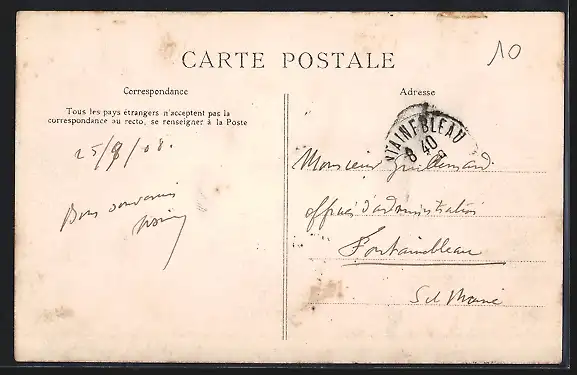 CARTE POSTALE
10
Correspondance
Tous les pays étrangers n'acceptent pas la
correspondance au recto, se renseigner à la Poste
25/8/08.
Bons souvenirs
Adresse
NTAINEBLEAU
8 40
Monsieur Guillemard
officier d'administration
Fontainebleau
S et Marne